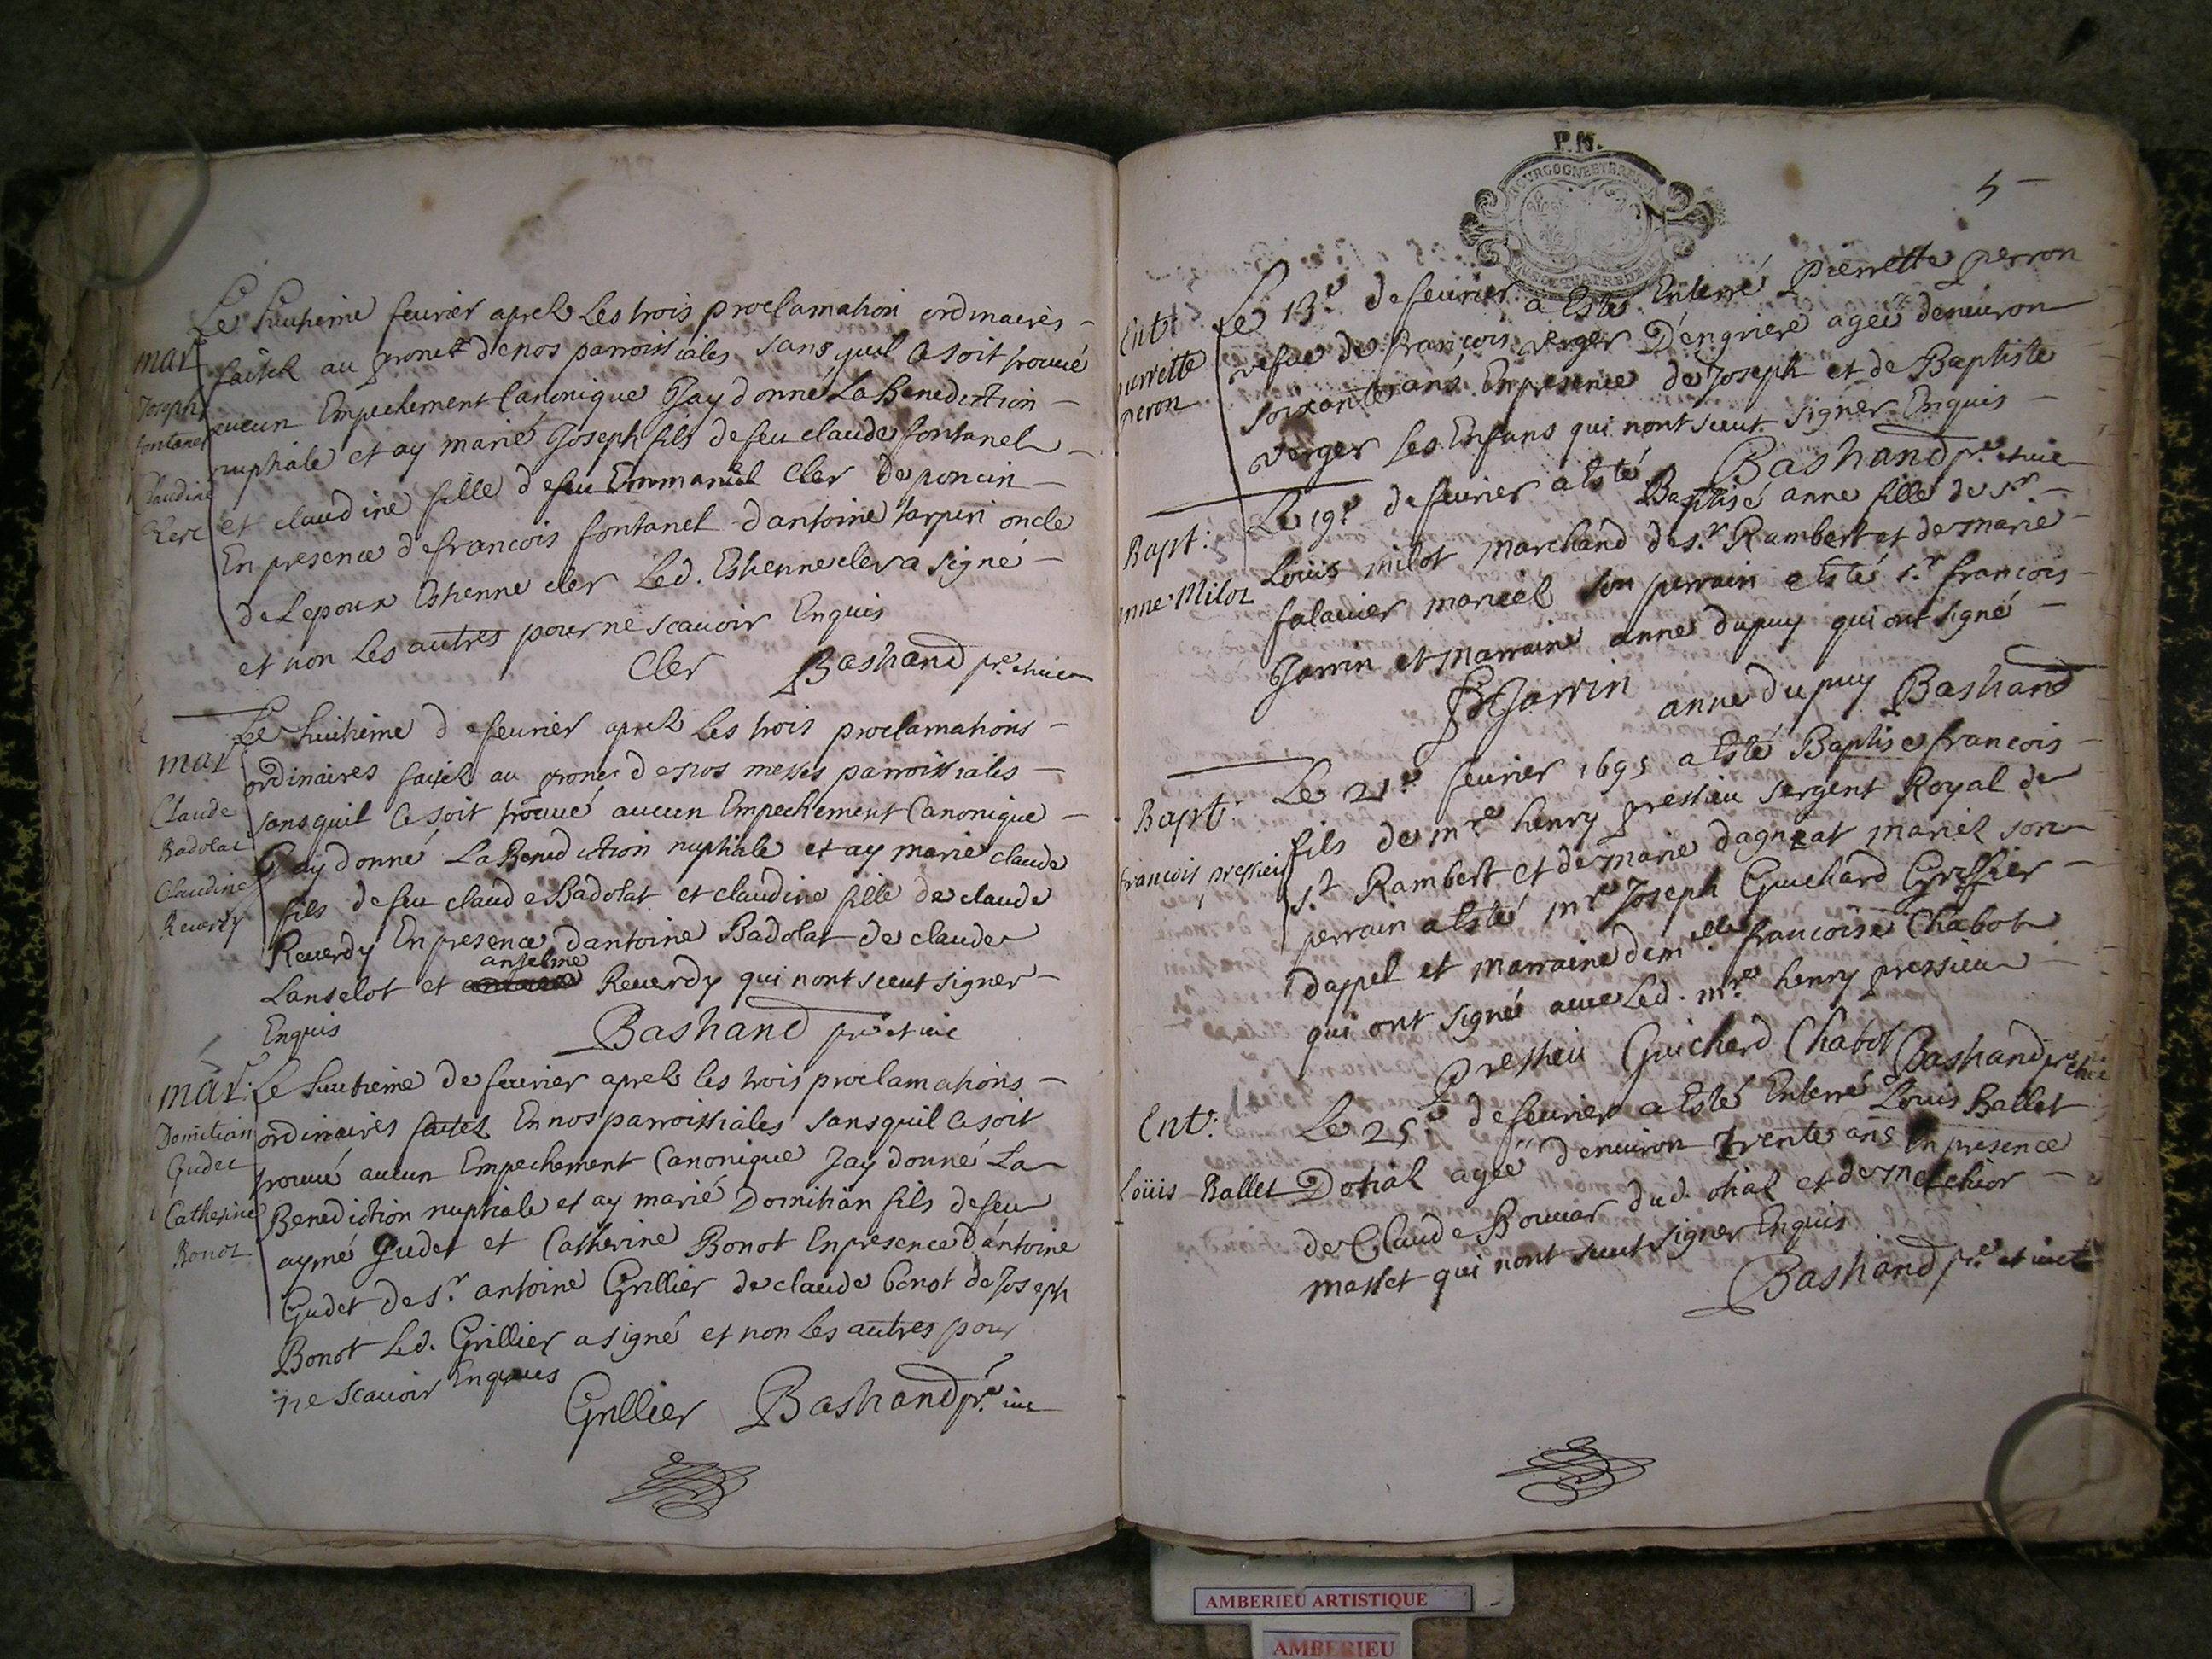 Le huitieme feurier apres les trois proclamation ordinaires
mar
faites au prone de nos parroissiales sans quil ce soit trouué
Joseph
fontanel
aucun Empechement Canonique Jay donné La Benediction
nuptiale et ay marié Joseph fils de feu claude fontanel
Claudine
Clerc
et claudine fille de feu Emmanuel Cler de poncin
En presence de francois fontanel dantoine tarpin oncle
de Lepoux Estienne cler Led. Estienne cler a signé
et non Les autres pour ne scauoir Enquis
Cler Bashand pr. et uic
Le huitieme de feurier apres Les trois proclamations
mar
ordinaires faites au prone de nos messes parroissiales
Claude
Badolat
sans quil ce soit trouué aucun Empechement Canonique
Jay donné La Benediction nuptiale et ay marié claude
Claudine
Reuerdy
fils de feu claude Badolat et claudine fille de claude
Reuerdy En presence dantoine Badolat de claude
anselme
Lanselot et Reuerdy qui nont sceut signer
Enquis
Bashand pr et uic
mar: Le huitieme de feurier apres les trois proclamations
Domitian
ordinaires faites En nos parroissiales sans quil ce soit
Gudet
trouué aucun Empechement Canonique Jay donné La
Catherine
Benediction nuptiale et ay marié Domitian fils de feu
Bonot
aymé Gudet et Catherine Bonot En presence dantoine
Gudet de sr. antoine Grillier de claude bonot de Joseph
Bonot Led. Grillier a signé et non Les autres pour
ne scauoir Enquis
Grillier Bashand pr. uic
P.N.
BOURGOGNE ET BRESSE
5
Ent:
Le 13e de feurier a Esté Enterré Pierrette perron
pierrette
peron
vefue de francois verger Dengriere agée denuiron
soixante ans En presence de Joseph et de Baptiste
verger ses Enfans qui nont sceut signer Enquis
Bashand pr. et uic
Bapt:
Le 19e de feurier a esté Baptisé anne fille de sr.
anne Milot
Louis milot marchand de st. Rambert et de marie
falauier mariés son perrain a Esté sr. francois
Jarrin et marraine anne dupuy qui ont signé
Jarrin anne dupuy Bashand
Bapt:
Le 21e feurier 1695 a Esté Baptisé francois
francois pressieu
fils de mre henry pressieu sergent Royal de
st Rambert et de marie dagneat mariés son
perrain a Esté mre Joseph Guichard Greffier
dappel et marraine demlle francoise Chabot
qui ont signé auec Led. mre henry pressieu
Pressieu Guicherd Chabot Bashand pr et uic
Ent:
Le 25e de feurier a Esté Enterré Louis Ballet
Loüis Ballet
Dotial agée denuiron trente ans En presence
de Claude Bouuar dud. otial et de melchior
masset qui nont sceut signer Enquis
Bashand pr. et uic
AMBERIEU ARTISTIQUE
AMBERIEU